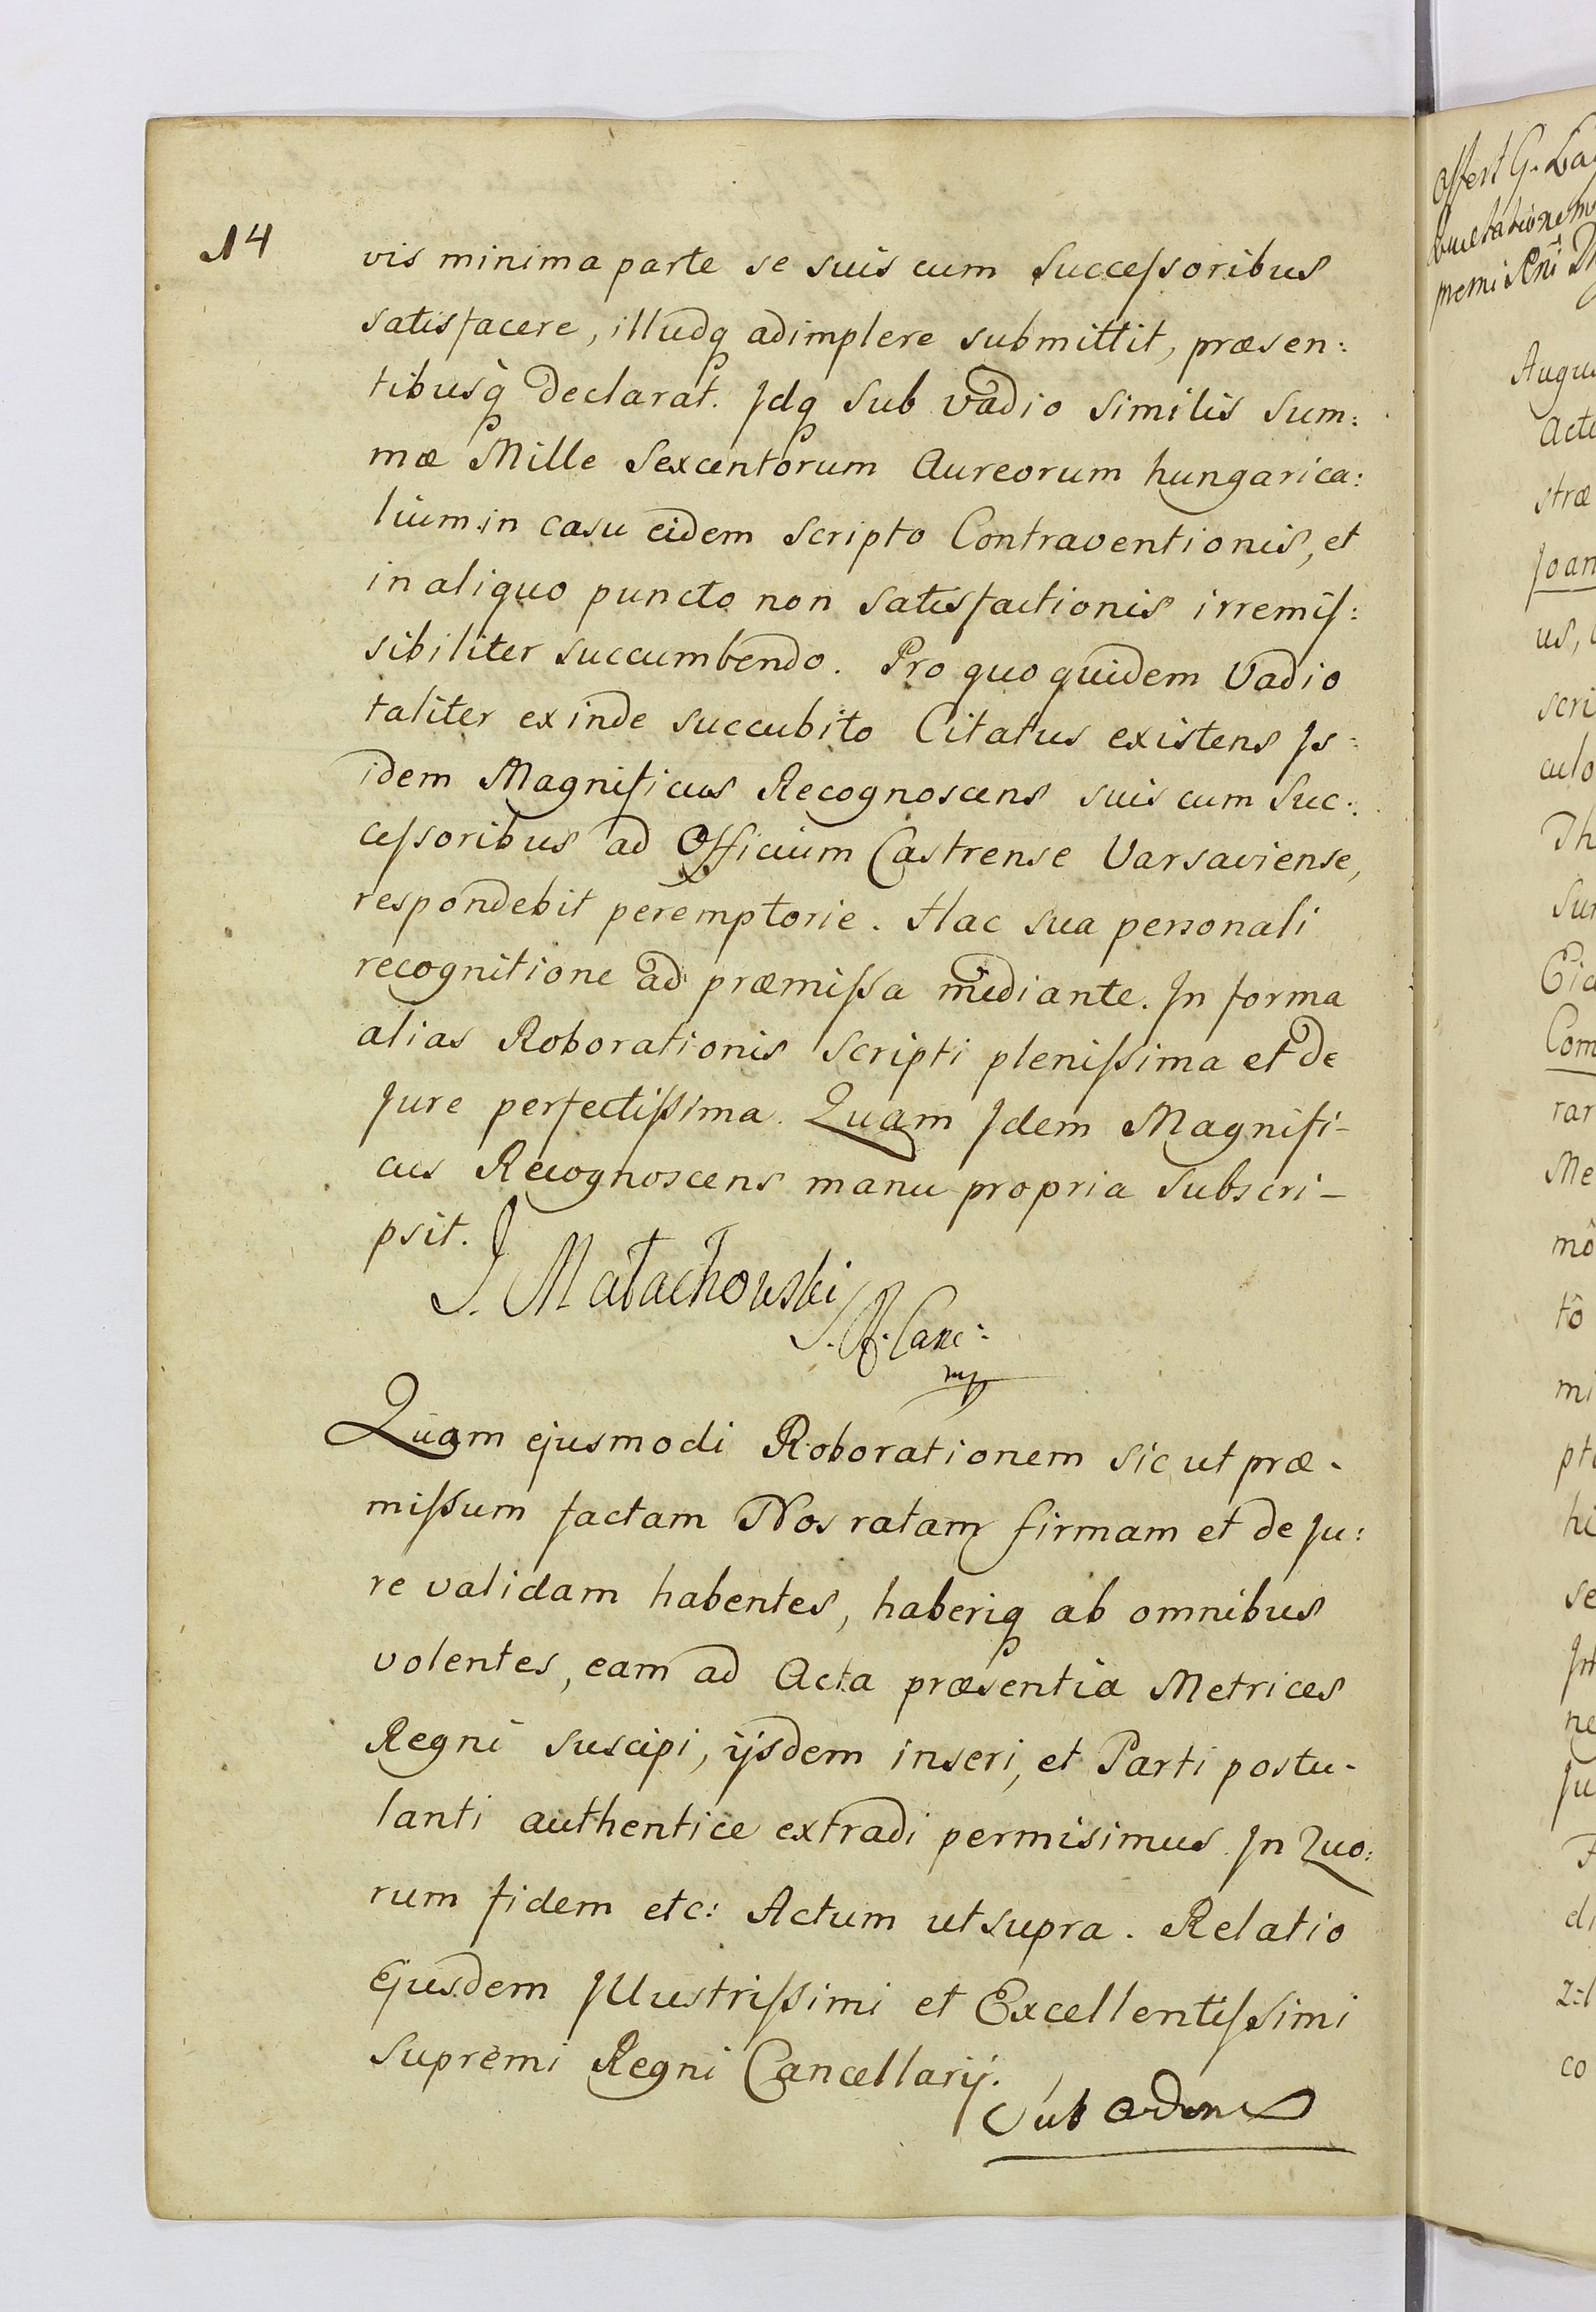 14
vis minima parte se suis cum Succeſsoribus
satisfacere, illudq adimplere submittit, præsen:
tibusq̀ declarat. Jdq sub vadio similis sum:
mæ Mille Sexcentorum Aureorum hungarica:
lium in casu eidem Scripto Contraventionis, et
in aliquo puncto non satisfactionis irremiſ:
sibiliter succumbendo. Pro quo quidem Vadio
taliter exinde succubito Citatus existens Js:
idem Magnificus Recognoscens suis cum Suc:
ceſsoribus ad Officium Castrense Varsaviense,
respondebit peremptorie. Hac sua personali
recognitione ad præmiſsa mediante. Jn forma
alias Roborationis Scripti pleniſsima et de
Jure perfectiſsima. Quam Jdem Magnifi-
cus Recognoscens manu propria Subscri-
psit.
J. Małachowski
S. R. Canc:
mp
Quam ejusmodi Roborationem sic ut præ-
miſsum factam Nos ratam firmam et de Ju:
re validam habentes, haberiq ab omnibus
volentes, eam ad Acta præsentia Metrices
Regni suscipi, ijsdem inseri, et Parti postu-
lanti authentice extradi permisimus. Jn Quo:
rum fidem etc: Actum ut supra. Relatio
Ejusdem Jllustriſsimi et Excellentiſsimi
Supremi Regni Cancellarij.
Sub
offert G.
Augus
Acto
stræ
Joan
us,
scri
culo
Th
Sum
Com
rar
Me
mô
tô
mi
hi
se
ne
Ju
di
co